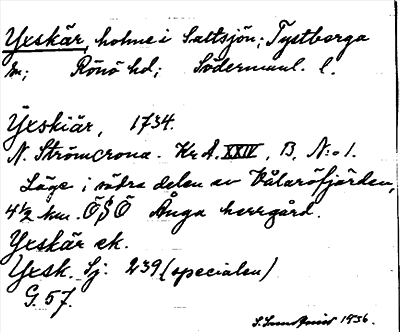 Yxskär, holme i Saltsjön; Tystberga
sn; Rönö hd; Södermanl. l.
Yxskiär, 1734.
N. Strömcrona. Kr. A. XXIV, B, N:o 1.
Läge i södra delen av Vålaröfjärden,
4 1/2 km. ÖSÖ Ånga herrgård.
Yxskär ek.
Yxsk. Sj. 239 (specialen)
G. 57.
1936.